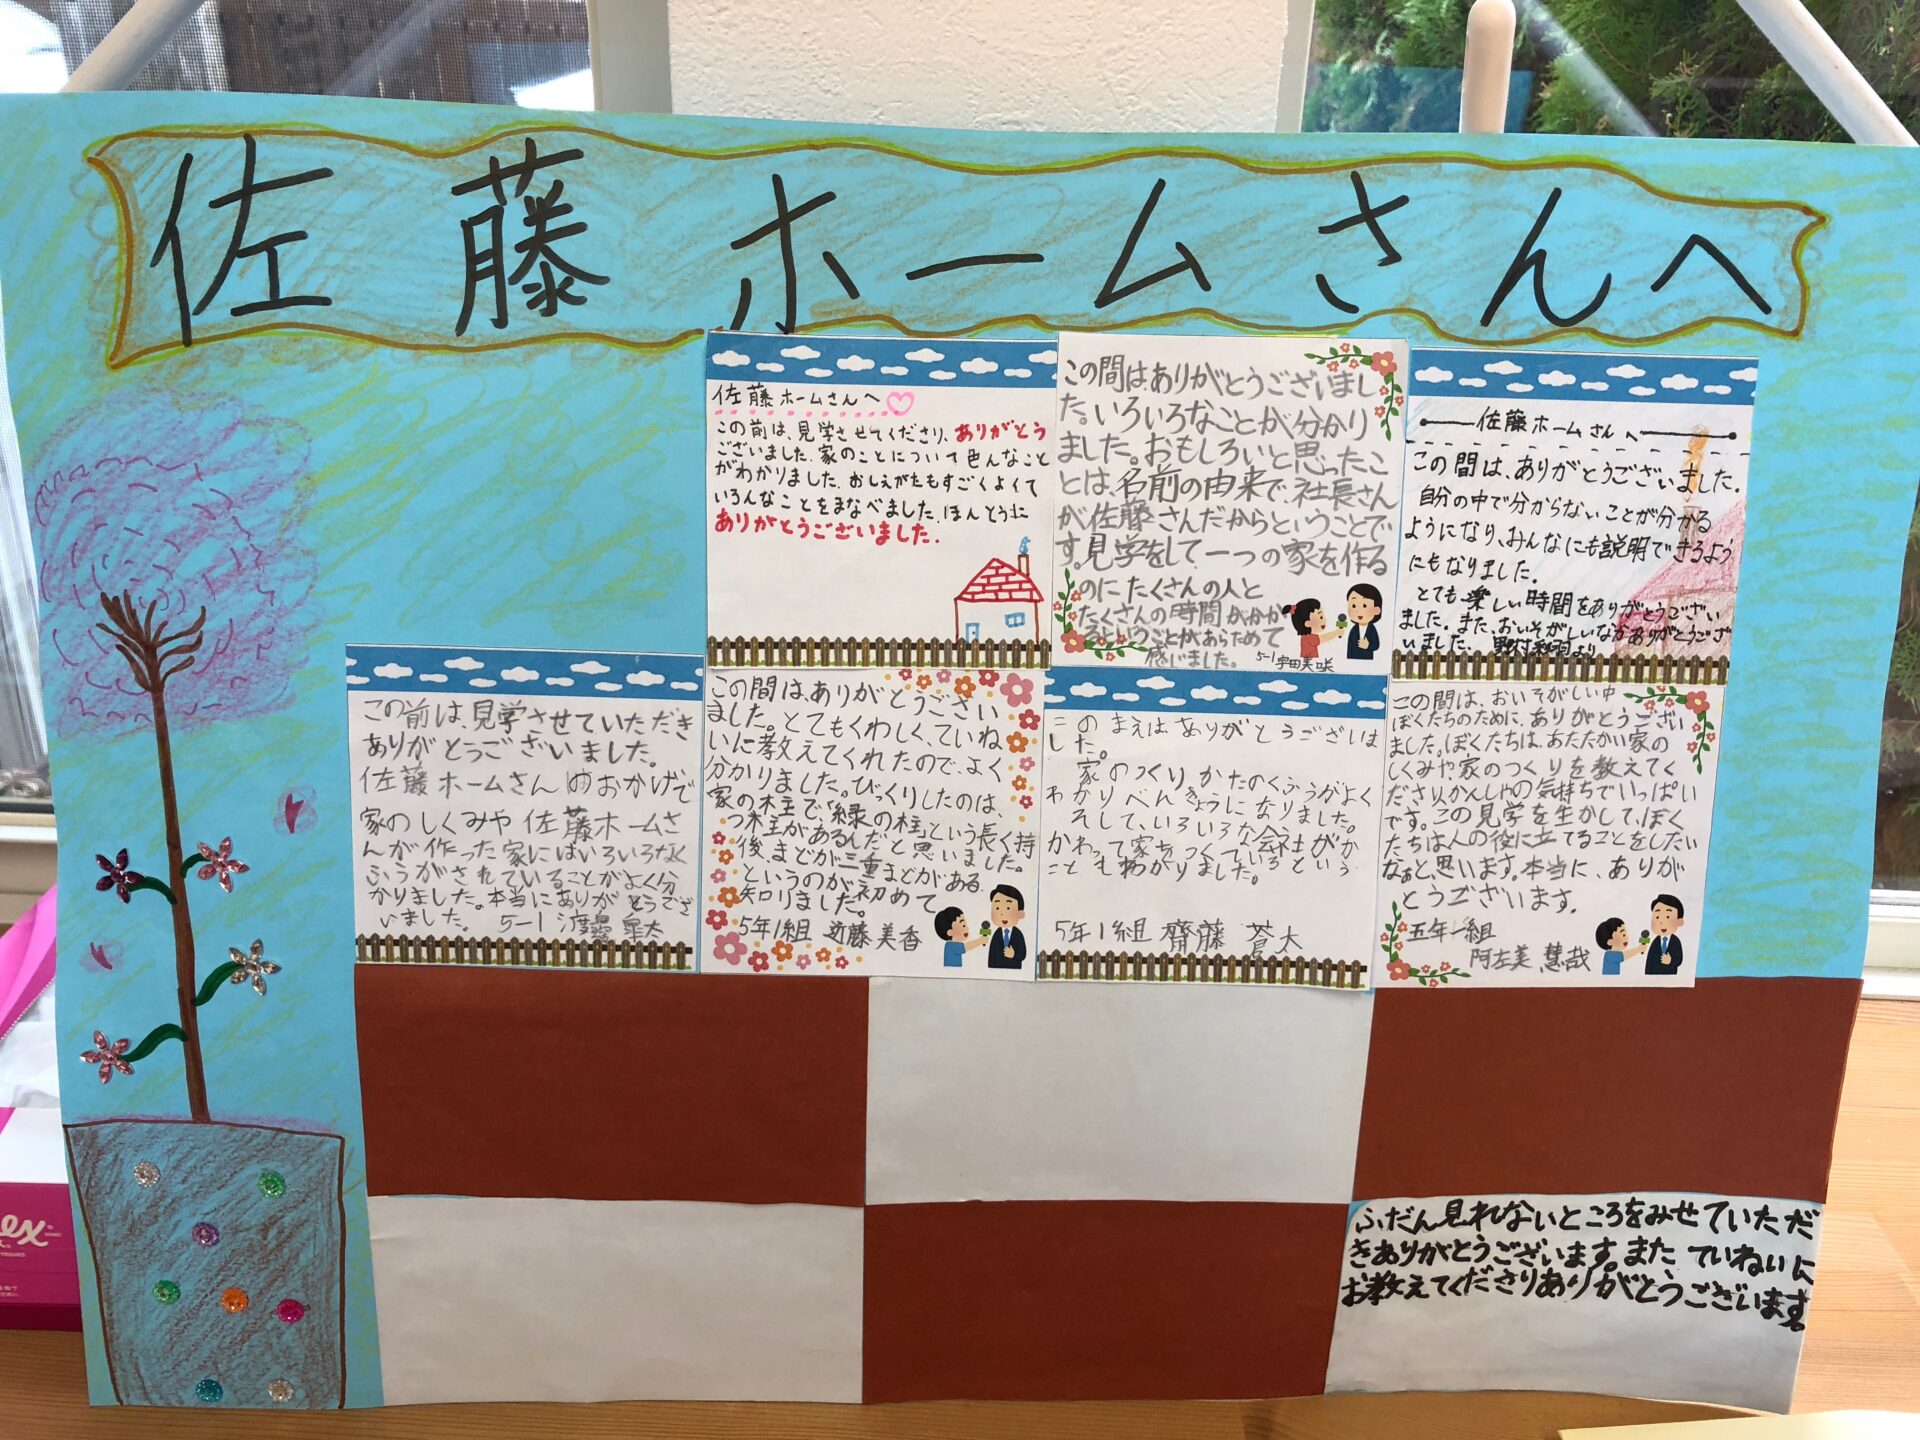 佐藤ホームさんへ
佐藤ホームさんへ
この前は、見学させてくださり、ありがとう
ございました。家のことについて色んなこと
がわかりました。おしえがたもすごくよくて
いろんなことをまなべました。ほんとうに
ありがとうございました。
この間はありがとうございまし
た。いろいろなことが分かり
ました。おもしろいと思ったこ
とは、名前の由来で、社長さん
が佐藤さんだからということで
す。見学をして一つの家を作る
のにたくさんの人と
たくさんの時間がかか
るということがあらためて
感じました。
5-1 宇田美咲
佐藤ホームさんへ
この間は、ありがとうございました。
自分の中で分からないことが分かる
ようになり、みんなにも説明できるよう
にもなりました。
とても楽しい時間をありがとうござい
ました。また、おいそがしいなかありがとうござ
いました。 野村 より
この前は、見学させていただき
ありがとうございました。
佐藤ホームさんのおかげで
家のしくみや佐藤ホームさ
んが作った家にはいろいろなく
ふうがされていることがよく分
かりました。本当にありがとうござ
いました。 5-1 渡邉 皐太
この間は、ありがとうござい
ました。とてもくわしく、ていね
いに教えてくれたので、よく
分かりました。びっくりしたのは、
家の柱で、「緑の柱」という長く持
つ柱があるんだと思いました。
後、まどが三重まどがある
というのが初めて
知りました。
5年1組 近藤美香
このまえは、ありがとうございま
した。
家のつくりかたのくふうがよく
わかりべんきょうになりました。
そして、いろいろな会社がか
かわって家をつくっているという
こともわかりました。
5年1組 齋藤 蒼太
この間は、おいそがしい中
ぼくたちのために、ありがとうござい
ました。ぼくたちは、あたたかい家の
しくみや、家のつくりを教えてく
ださり、かんしゃの気持ちでいっぱい
です。この見学を生かして、ぼく
たちは人の役に立てることをしたい
なぁと、思います。本当に、ありが
とうございます。
五年一組
阿左美 慧哉
ふだん見れないところをみせていただ
きありがとうございます。また ていねいに
お教えてくださりありがとうございます。
ex